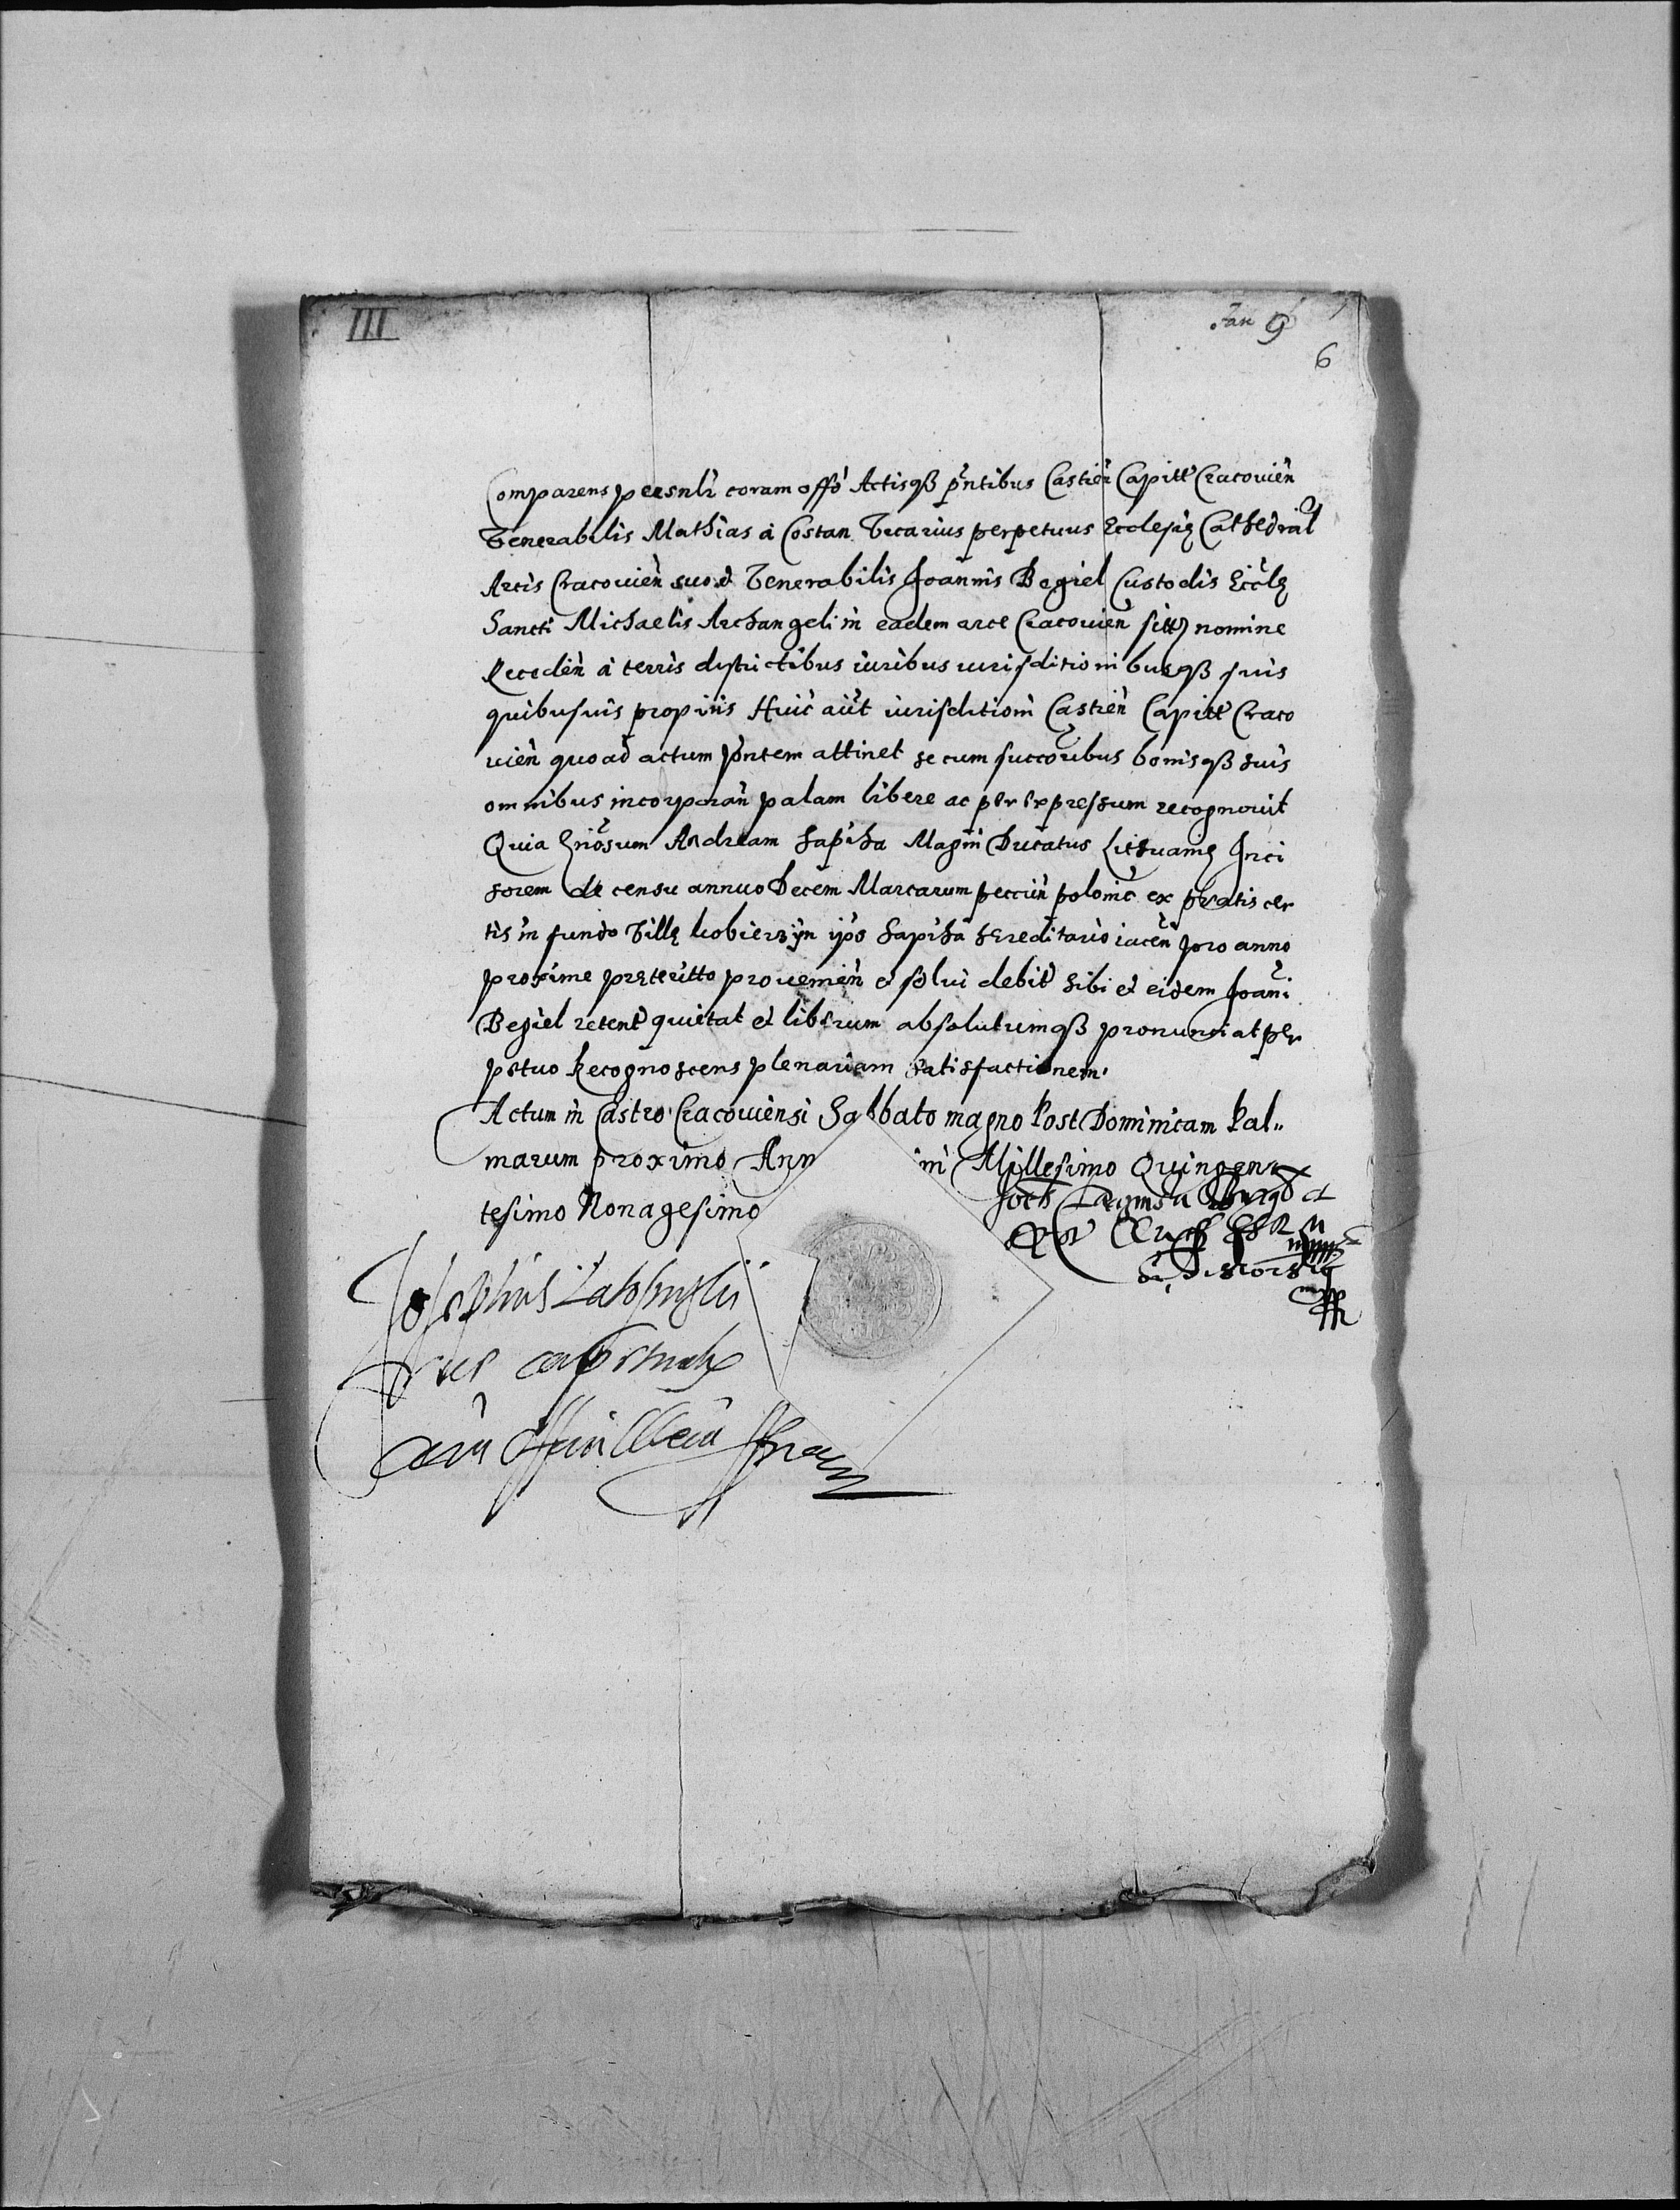 III
Jan 9
6
Comparens personlr coram offo Actisqß pñtibus Castreñ Capitt Cracouieñ
Venerabilis Mathias à Costan Vicarius perpetuus Ecclesię Cathedral
Arcis Cracouieñ suo et Venerabilis Joannis Begiel Custodis Eccłę
Sancti Michaelis Archangeli in eadem arce Cracouieñ sitę nomine
Recedeñ à terris districtibus iuribus iurisditionibusqß suis
quibusuis proprijs Huic aut iurisditioni Castreñ Capitt Craco
uieñ quoad actum pñtem attinet se cum succoribus bonisqß suis
omnibus incorporañ palam libere ac per expressum recognouit
Quia Gñosum Andream Sapiha Magni Ducatus Lithuanię Inci
sorem de censu annuo Decem Marcarum pecuñ polonic ex pratis cer
tis in fundo Villę kobierzÿn ipso Sapiha hereditario iaceñ pro anno
proxime pręteritto prouenieñ et solui debit sibi et eidem Joanni
Begiel retent quietat et liberum absolutumqß pronunciat per
petuo Recognoscens plenariam satisfactionem.
Actum in Castro Cracouiensi Sabbato magno Post Dominicam Pal„
marum proximo Ann ini Millesimo Quingen
tesimo Nonagesimo
Josephus